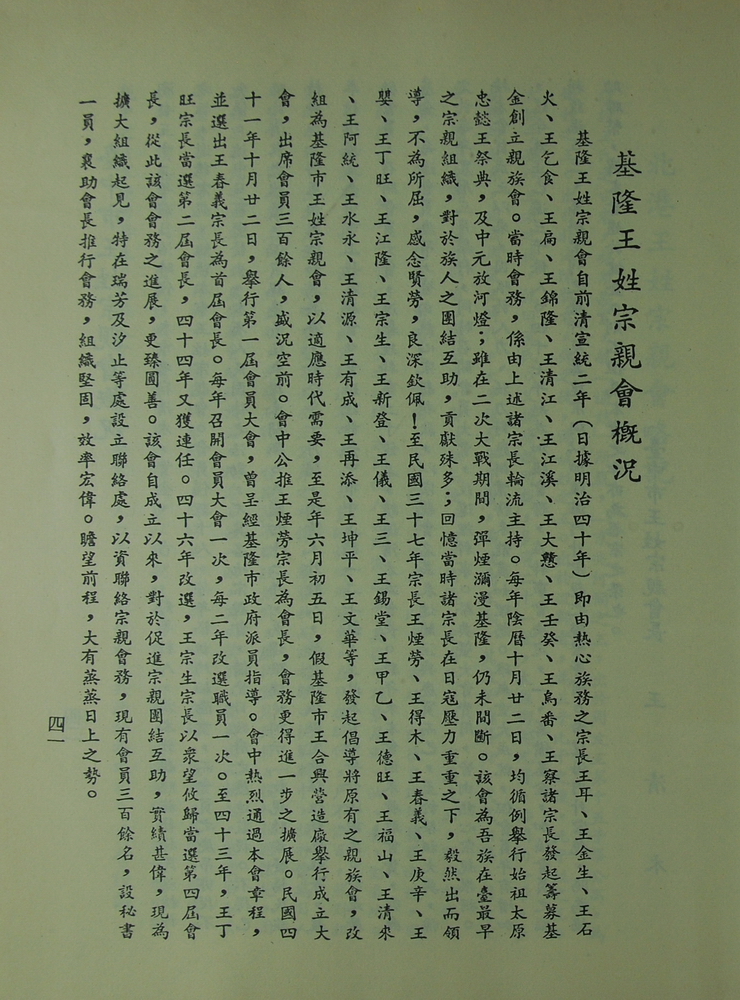 基隆王姓宗親會概況
基隆王姓宗親會自前清宣統二年(日據明治四十年)即由熱心族務之宗長王耳、王金生、王石
火、王乞食、王扁、王錦隆、王清江、王江溪、王大戇、王壬癸、王烏番、王察諸宗長發起籌募基
金創立親族會。當時會務,係由上述諸宗長輪流主持。每年陰曆十月廿二日,均循例舉行始祖太原
忠懿王祭典,及中元放河燈;雖在二次大戰期間,彈煙瀰漫基隆,仍未間斷。該會為吾族在臺最早
之宗親組織,對於族人之團結互助,貢獻殊多;回憶當時諸宗長在日寇壓力重重之下,毅然出而領
導,不為所屈,感念賢勞,良深欽佩!至民國三十七年宗長王煙勞、王得木、王春義、王庚辛、王
嬰、王丁旺、王江隆、王宗生、王新登、王儀、王三、王錫堂、王甲乙、王德旺、王福山、王清來
、王阿統、王水永、王清源、王有成、王再添、王坤平、王文華等,發起倡導將原有之親族會,改
組為基隆市王姓宗親會,以適應時代需要,至是年六月初五日,假基隆市王合興營造廠舉行成立大
會,出席會員三百餘人,盛況空前。會中公推王煙勞宗長為會長,會務更得進一步之擴展。民國四
十一年十月廿二日,舉行第一屆會員大會,曾呈經基隆市政府派員指導。會中熱烈通過本會章程,
並選出王春義宗長為首屆會長。每年召開會員大會一次,每二年改選職員一次。至四十三年,王丁
旺宗長當選第二屆會長,四十四年又獲連任。四十六年改選,王宗生宗長以衆望攸歸當選第四屆會
長,從此該會會務之進展,更臻圓善。該會自成立以來,對於促進宗親團結互助,實績甚偉,現為
擴大組織起見,特在瑞芳及汐止等處設立聯絡處,以資聯絡宗親會務,現有會員三百餘名,設秘書
一員,襄助會長推行會務,組織堅固,效率宏偉。瞻望前程,大有蒸蒸日上之勢。
四一